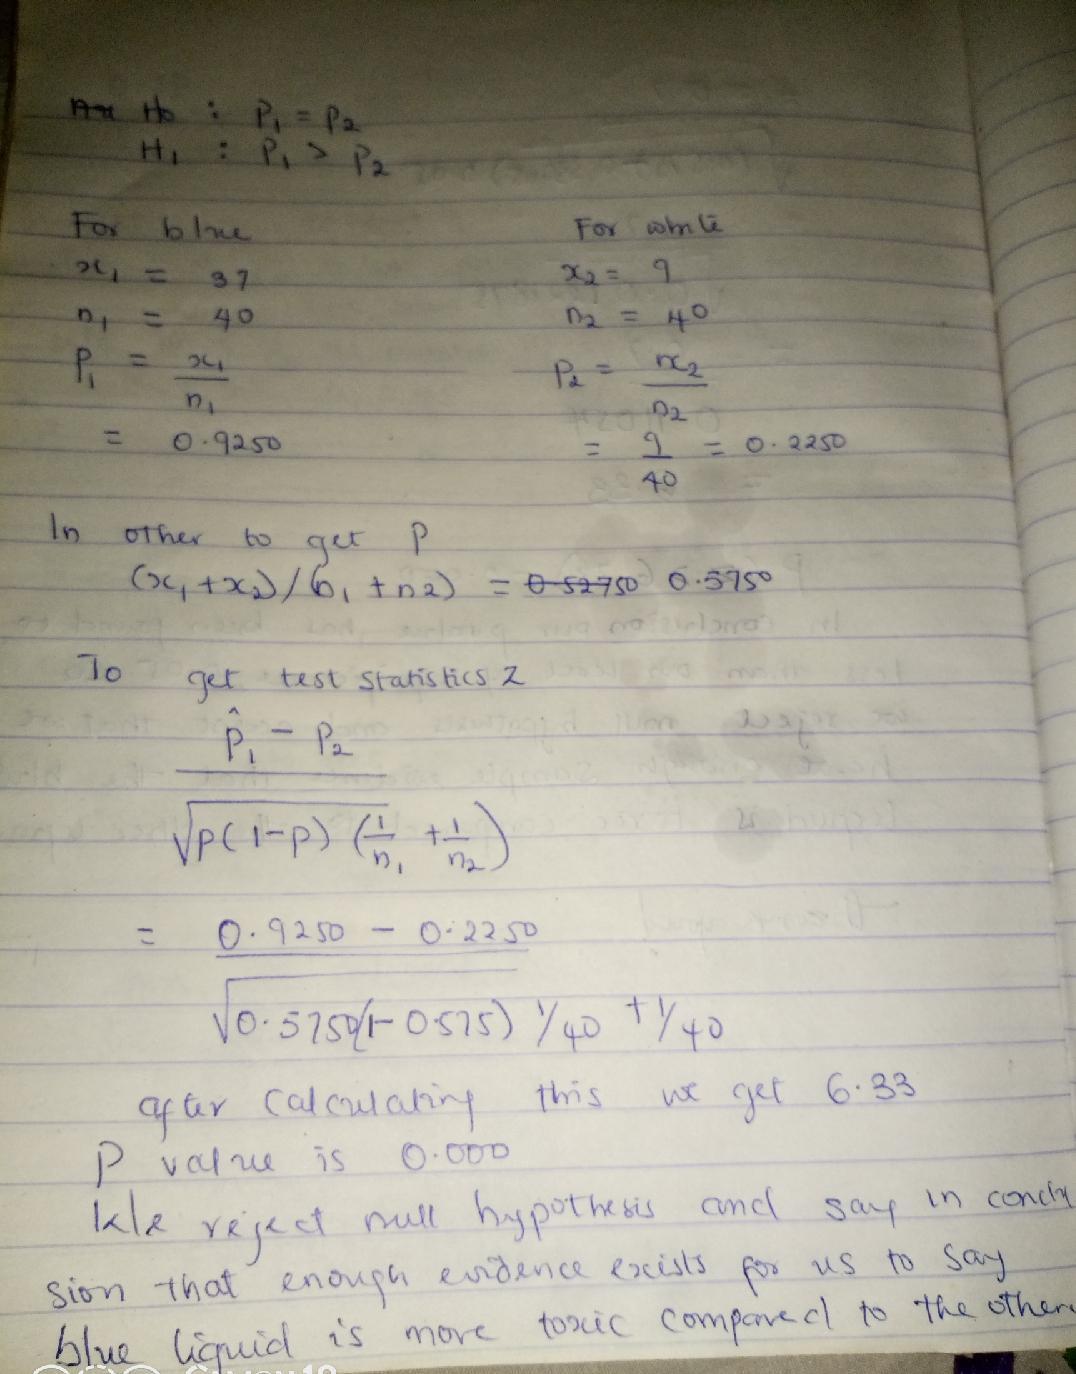 H0 : P1 = P2
H1 : P1 > P2
For blue
x1 = 37
n1 = 40
P1 = x1/n1
= 0.9250
For white
x2 = 9
n2 = 40
P2 = x2/n2
= 9/40 = 0.2250
In other to get P
(x1 + x2)/(n1 + n2) = 0.52750 0.5750
To get test statistics Z
p̂1 - P2
√P(1-P) (1/n1 + 1/n2)
= 0.9250 - 0.2250
√0.5750(1-0.575) 1/40 + 1/40
after calculating this we get 6.33
P value is 0.000
We reject null hypothesis and say in conclu
sion that enough evidence exists for us to say
blue liquid is more toxic compared to the other